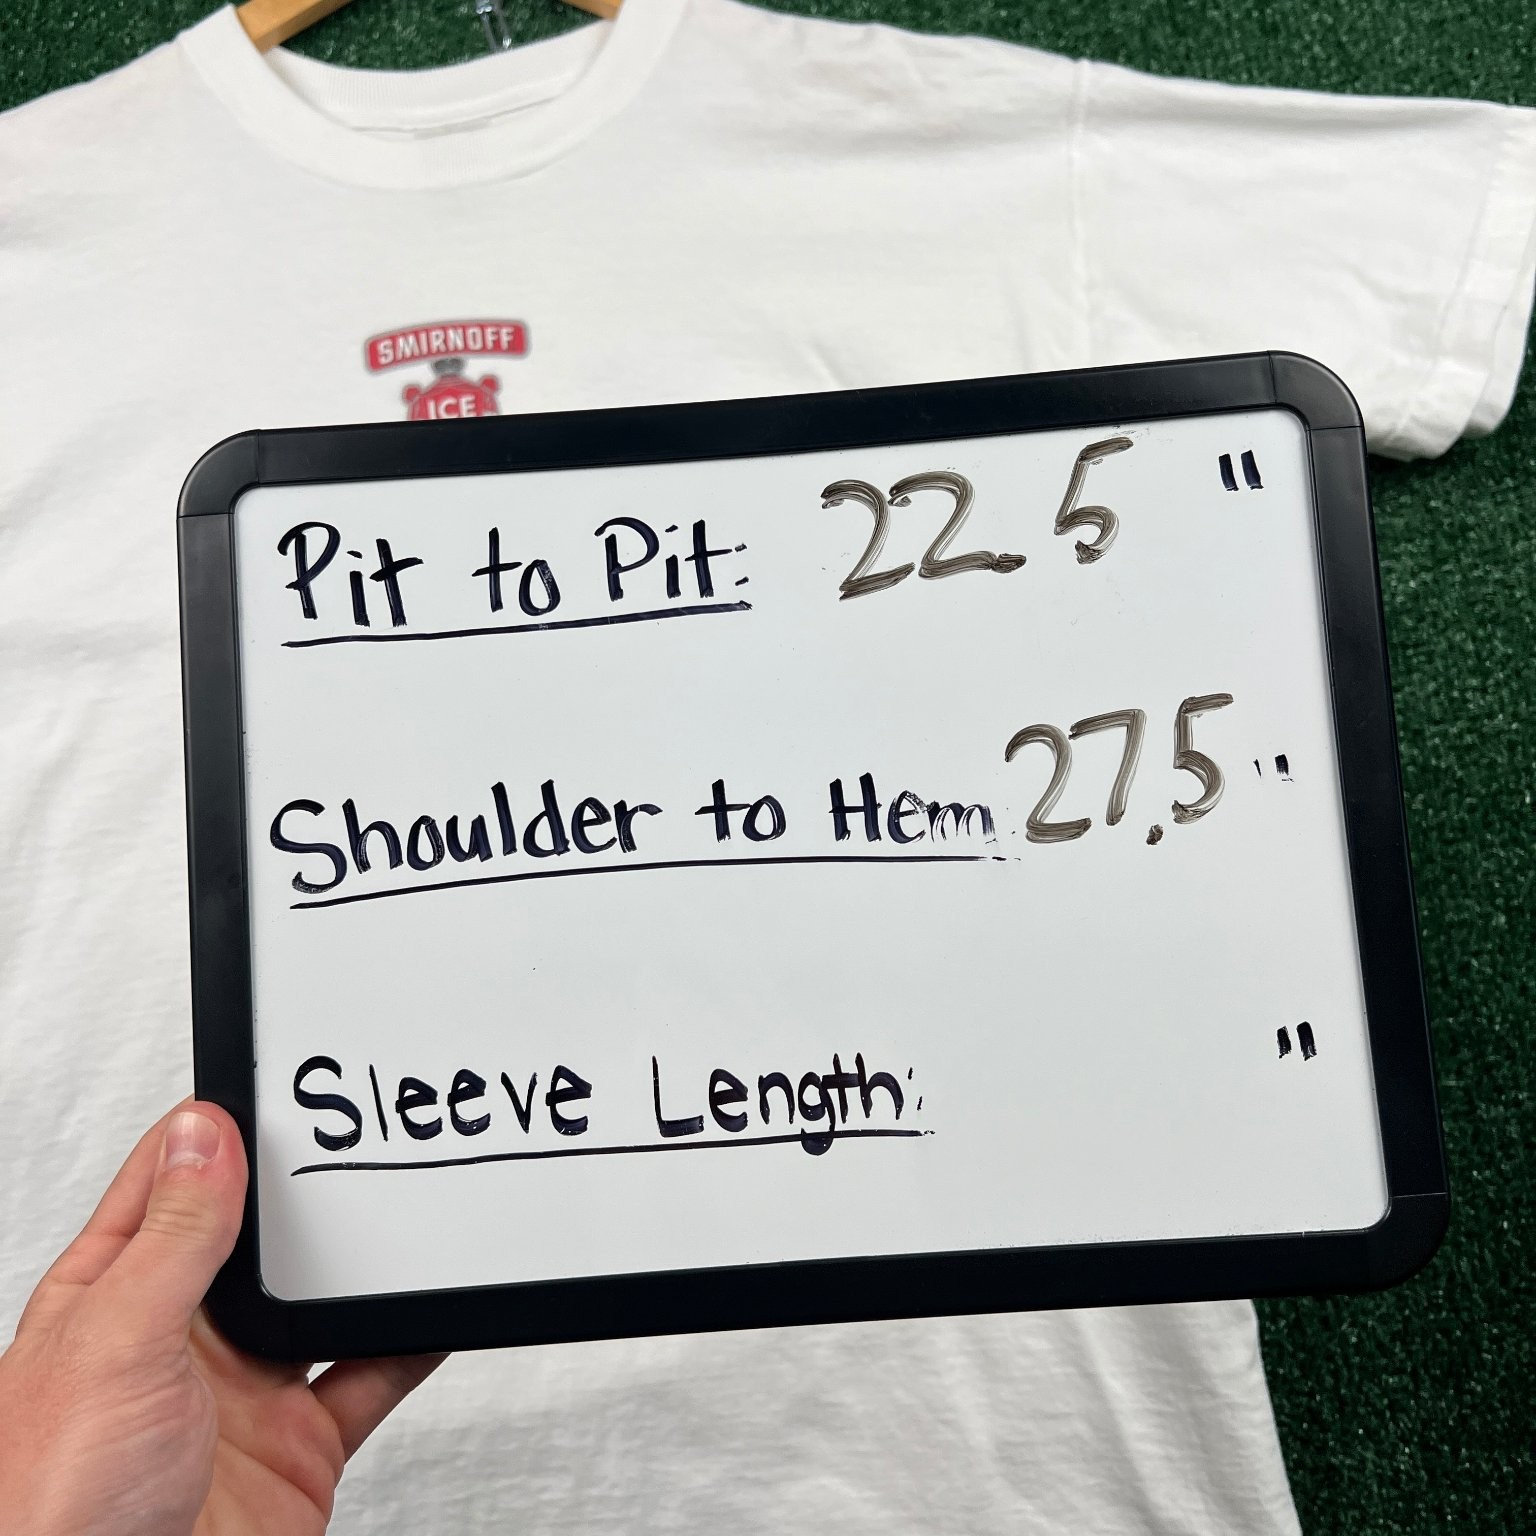 SMIRNOFF
ICE
Pit to Pit: 22.5 "
Shoulder to Hem 27.5 "
Sleeve Length: "